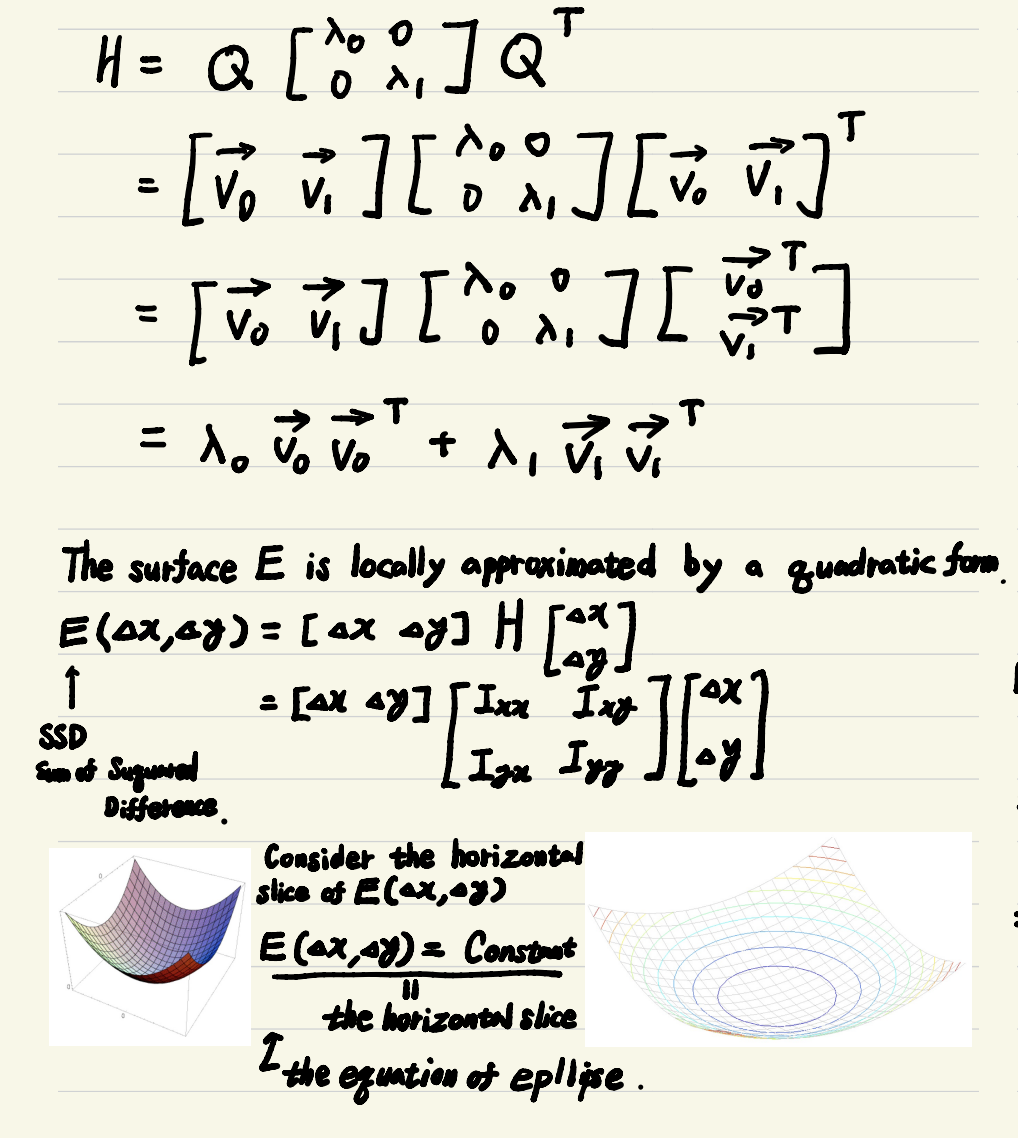 H = Q [λ₀ 0 0 λ₁] Qᵀ
= [v⃗₀ v⃗₁] [λ₀ 0 0 λ₁] [v⃗₀ v⃗₁]ᵀ
= [v⃗₀ v⃗₁] [λ₀ 0 0 λ₁] [v⃗₀ᵀ v⃗₁ᵀ]
= λ₀ v⃗₀ v⃗₀ᵀ + λ₁ v⃗₁ v⃗₁ᵀ
The surface E is locally approximated by a quadratic form.
E(Δx,Δy) = [Δx Δy] H [Δx Δy]
= [Δx Δy] [Ixx Ixy Iyx Iyy] [Δx Δy]
↑
SSD
Sum of Suquared
Difference.
Consider the horizontal
slice of E(Δx,Δy)
E(Δx,Δy) = Constant
=
the horizontal slice
the equation of epllipse.
0
0
0